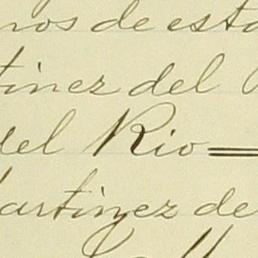 nos de esta
tinez del
del Rio
artinez de